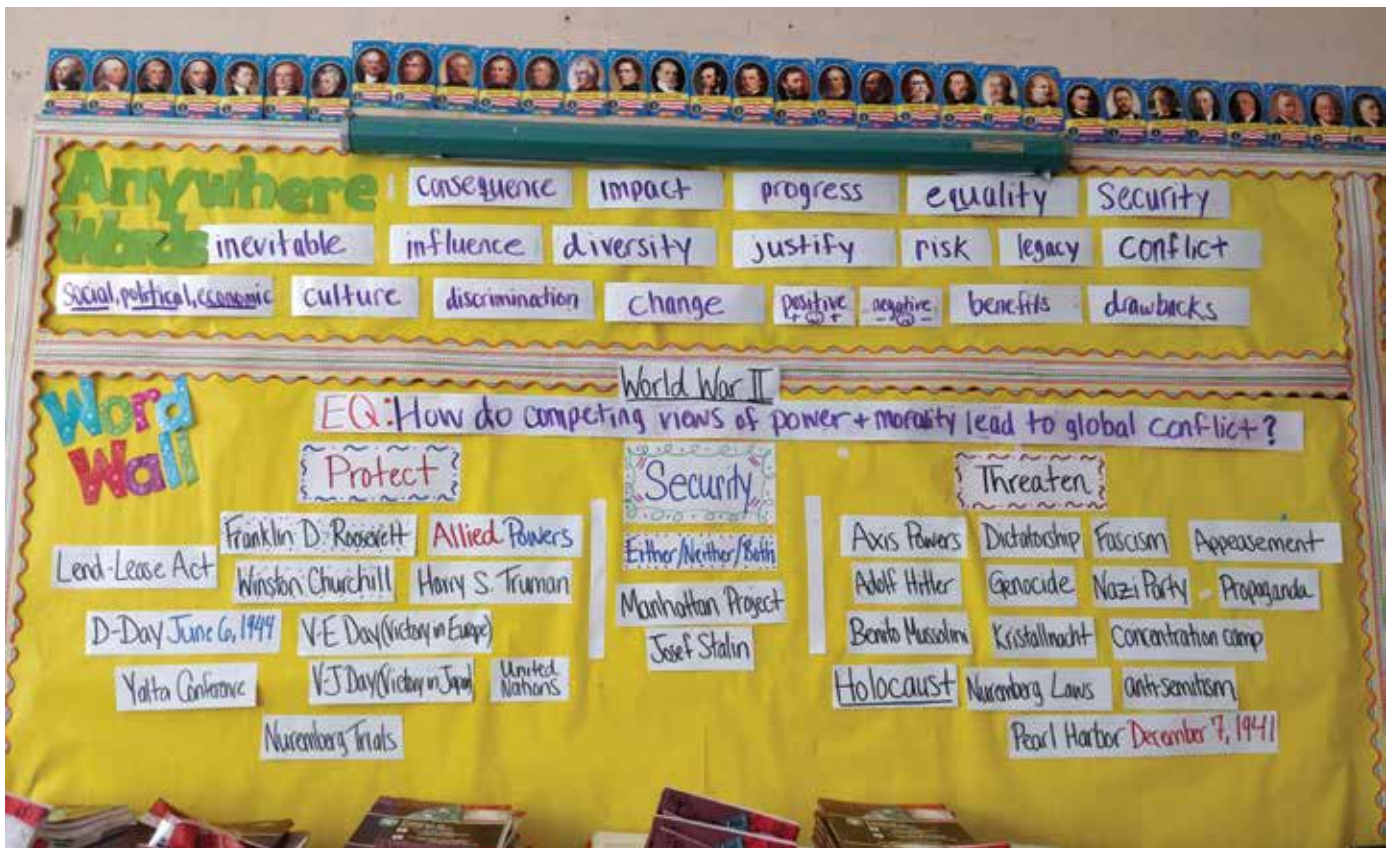 Anywhere Words
consequence impact progress equality Security
inevitable influence diversity justify risk legacy conflict
social, political, economic culture discrimination change positive + + negative - - benefits drawbacks
Word Wall
World War II
EQ: How do competing views of power + morality lead to global conflict?
Protect
Franklin D. Roosevelt Allied Powers
Lend-Lease Act
Winston Churchill Harry S. Truman
D-Day June 6, 1944 V-E Day (Victory in Europe)
Yalta Conference V-J Day (Victory in Japan) United Nations
Nuremberg Trials
Security
Either/Neither/Both
Manhattan Project
Josef Stalin
Threaten
Axis Powers Dictatorship Fascism Appeasement
Adolf Hitler Genocide Nazi Party Propaganda
Benito Mussolini Kristallnacht Concentration camp
Holocaust Nuremberg Laws anti-semitism
Pearl Harbor December 7, 1941